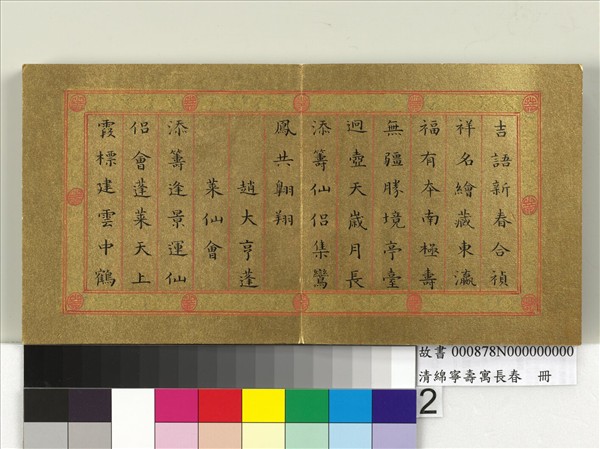 吉語新春合禎
祥名繪藏東瀛
福有本南極壽
無疆勝境亭臺
迥壺天歲月長
添籌仙侶集鸞
鳳共翱翔
趙大亨蓬
萊仙會
添籌逢景運仙
侶會蓬萊天上
霞標建雲中鶴
故書 000878N000000000
清綿寧壽寓長春 冊
2